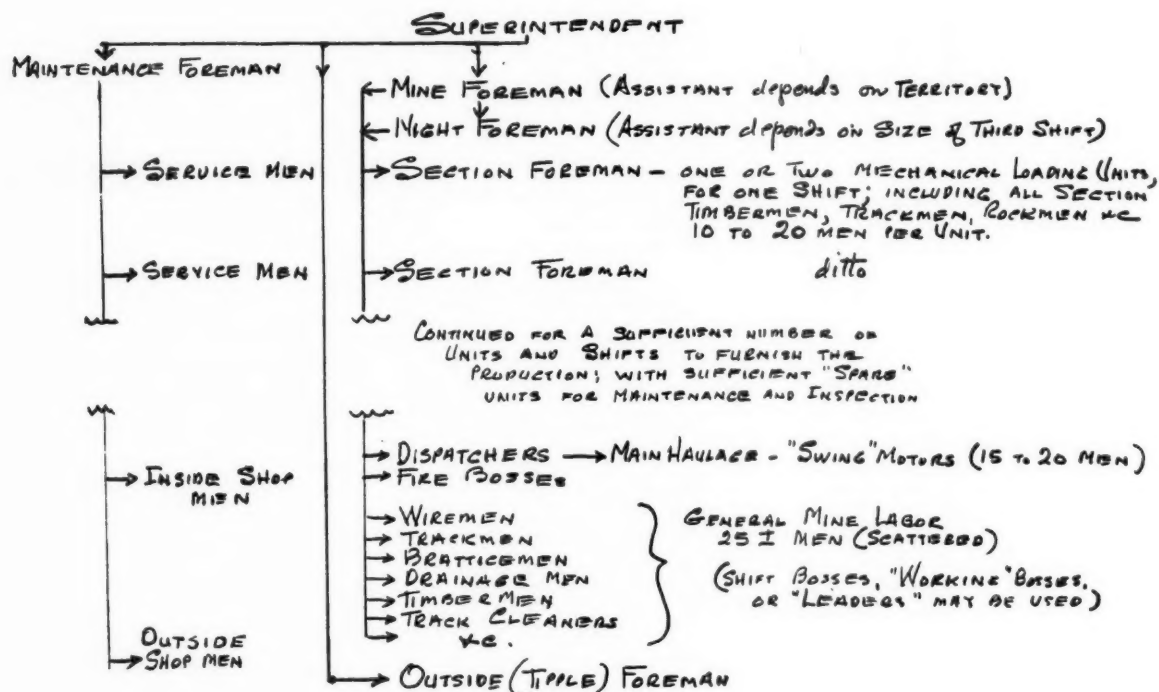 SUPERINTENDENT
MAINTENANCE FOREMAN
MINE FOREMAN (ASSISTANT depends on TERRITORY)
NIGHT FOREMAN (ASSISTANT depends on SIZE of THIRD SHIFT)
SERVICE MEN
SECTION FOREMAN - ONE OR TWO MECHANICAL LOADING UNITS,
FOR ONE SHIFT; INCLUDING ALL SECTION
TIMBERMEN, TRACKMEN, ROCKMEN &C
10 TO 20 MEN PER UNIT.
SERVICE MEN
SECTION FOREMAN ditto
CONTINUED FOR A SUFFICIENT NUMBER OF
UNITS AND SHIFTS TO FURNISH THE
PRODUCTION; WITH SUFFICIENT "SPARE"
UNITS FOR MAINTENANCE AND INSPECTION
DISPATCHERS MAIN HAULAGE - "SWING" MOTORS (15 TO 20 MEN)
INSIDE SHOP
MEN
FIRE BOSSES
WIREMEN
TRACKMEN
BRATTICEMEN
DRAINAGE MEN
TIMBERMEN
TRACK CLEANERS
&C.
GENERAL MINE LABOR
25 ± MEN (SCATTERED)
(SHIFT BOSSES, "WORKING" BOSSES,
OR "LEADERS" MAY BE USED)
OUTSIDE
SHOP MEN
OUTSIDE (TIPPLE) FOREMAN